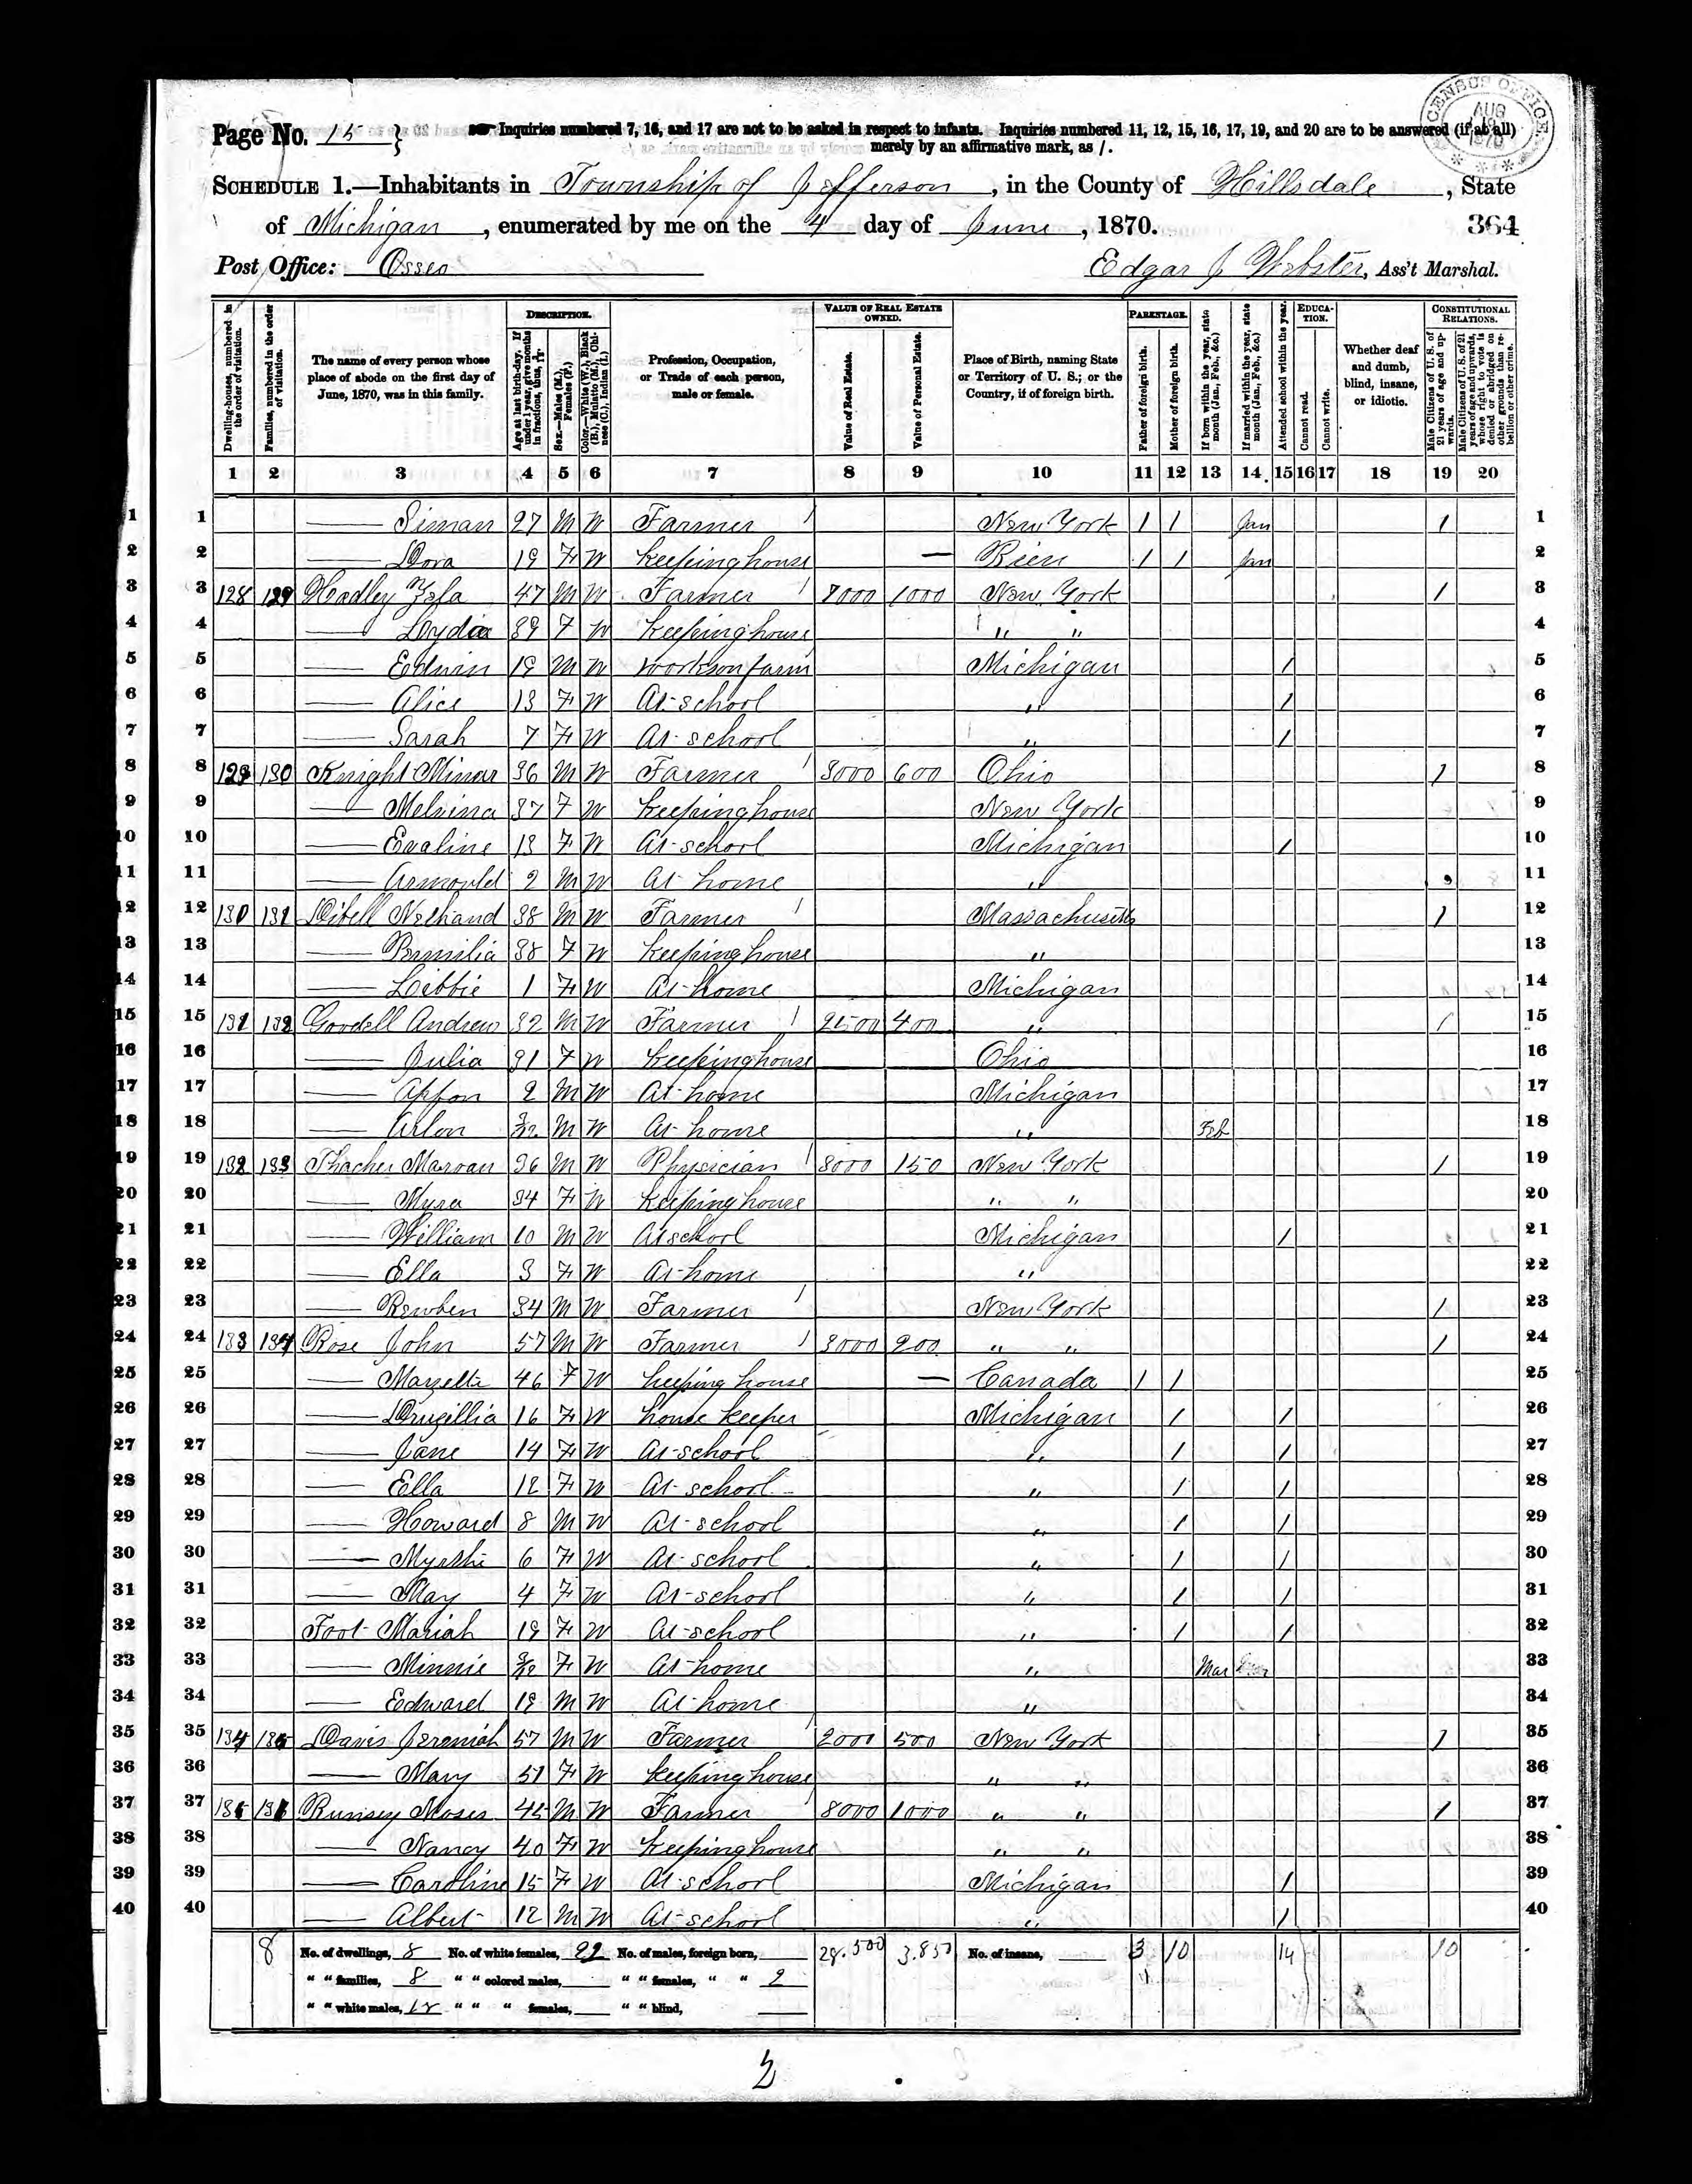 Page No. 15 }
Inquiries numbered 7, 16, and 17 are not to be asked in respect to infants. Inquiries numbered 11, 12, 15, 16, 17, 19, and 20 are to be answered (if at all)
merely by an affirmative mark, as /.
CENSUS OFFICE AUG 1870
SCHEDULE 1.—Inhabitants in Township of Jefferson, in the County of Hillsdale, State
of Michigan, enumerated by me on the 4 day of June, 1870. 364
Post Office: Osseo Edgar J Webster, Ass't Marshal.
Dwelling-houses, numbered in the order of visitation.
Families, numbered in the order of visitation.
The name of every person whose place of abode on the first day of June, 1870, was in this family.
DESCRIPTION.
Age at last birth-day. If under 1 year, give months in fractions, thus,
Sex.—Males (M.), Females (F.)
Color.—White (W.), Black (B.), Mulatto (M.), Chinese (C.), Indian (I.)
Profession, Occupation, or Trade of each person, male or female.
VALUE OF REAL ESTATE OWNED.
Value of Real Estate.
Value of Personal Estate.
Place of Birth, naming State or Territory of U. S.; or the Country, if of foreign birth.
PARENTAGE.
Father of foreign birth.
Mother of foreign birth.
If born within the year, state month (Jan., Feb., &c.)
If married within the year, state month (Jan., Feb., &c.)
Attended school within the year.
EDUCATION.
Cannot read.
Cannot write.
Whether deaf and dumb, blind, insane, or idiotic.
CONSTITUTIONAL RELATIONS.
Male Citizens of U. S. of 21 years of age and upwards.
Male Citizens of U. S. of 21 years of age and upwards, whose right to vote is denied or abridged on other grounds than rebellion or other crime.
1 2 3 4 5 6 7 8 9 10 11 12 13 14 15 16 17 18 19 20
1 1 —— 27 M W Farmer / New York / / Jan / 1
2 2 —— Dora 19 F W Keeping house — / / Jan 2
3 3 128 129 Hadley 47 M W Farmer / 7000 1000 New York / 3
4 4 —— Lydia 39 F W Keeping house " " 4
5 5 —— Edwin 19 M W works on farm Michigan / 5
6 6 —— Alice 13 F W At school " / 6
7 7 —— Sarah 7 F W At school " / 7
8 8 129 130 Knight 36 M W Farmer / 3000 600 Ohio / 8
9 9 —— Melvina 37 F W Keeping house New York 9
10 10 —— Evaline 13 F W At school Michigan / 10
11 11 —— 2 M W At home " 11
12 12 130 131 38 M W Farmer / Massachusetts / 12
13 13 —— 38 F W Keeping house " 13
14 14 —— Libbie 1 F W At home Michigan 14
15 15 131 132 Goodell Andrew 32 M W Farmer / 2500 400 " / 15
16 16 —— Julia 31 F W Keeping house Ohio 16
17 17 —— 2 M W At home Michigan 17
18 18 —— Arlon 3/12 M W At home " Feb 18
19 19 132 133 Thacher 36 M W Physician / 3000 150 New York / 19
20 20 —— Myra 34 F W Keeping house " " 20
21 21 —— William 10 M W At school Michigan / 21
22 22 —— Ella 3 F W At home " 22
23 23 —— Rewben 34 M W Farmer / New York / 23
24 24 133 134 Rose John 57 M W Farmer / 3000 200 " " / 24
25 25 —— 46 F W keeping house — Canada / / 25
26 26 —— Druzillia 16 F W house keeper Michigan / / 26
27 27 —— Jane 14 F W At school " / / 27
28 28 —— Ella 12 F W At school " / / 28
29 29 —— Howard 8 M W At school " / / 29
30 30 —— 6 F W At school " / / 30
31 31 —— May 4 F W At school " / / 31
32 32 Foot Mariah 19 F W At school " / / 32
33 33 —— Minnie 3/12 F W At home " Mar 33
34 34 —— Edward 19 M W At home " 34
35 35 134 135 Davis Jeremiah 57 M W Farmer / 2000 500 New York / 35
36 36 —— Mary 51 F W Keeping house " " 36
37 37 135 136 Rumsey Moses 45 M W Farmer / 8000 1000 " " / 37
38 38 —— Nancy 40 F W Keeping house " " 38
39 39 —— Caroline 15 F W At school Michigan / 39
40 40 —— Albert 12 M W At school " / 40
8 No. of dwellings, 8 No. of white females, 22 No. of males, foreign born, 28.500 3.850 No. of insane, 3 10 14 10
" " families, 8 " " colored males, " " females, " " 2
" " white males, 18 " " " females, " " blind,
2